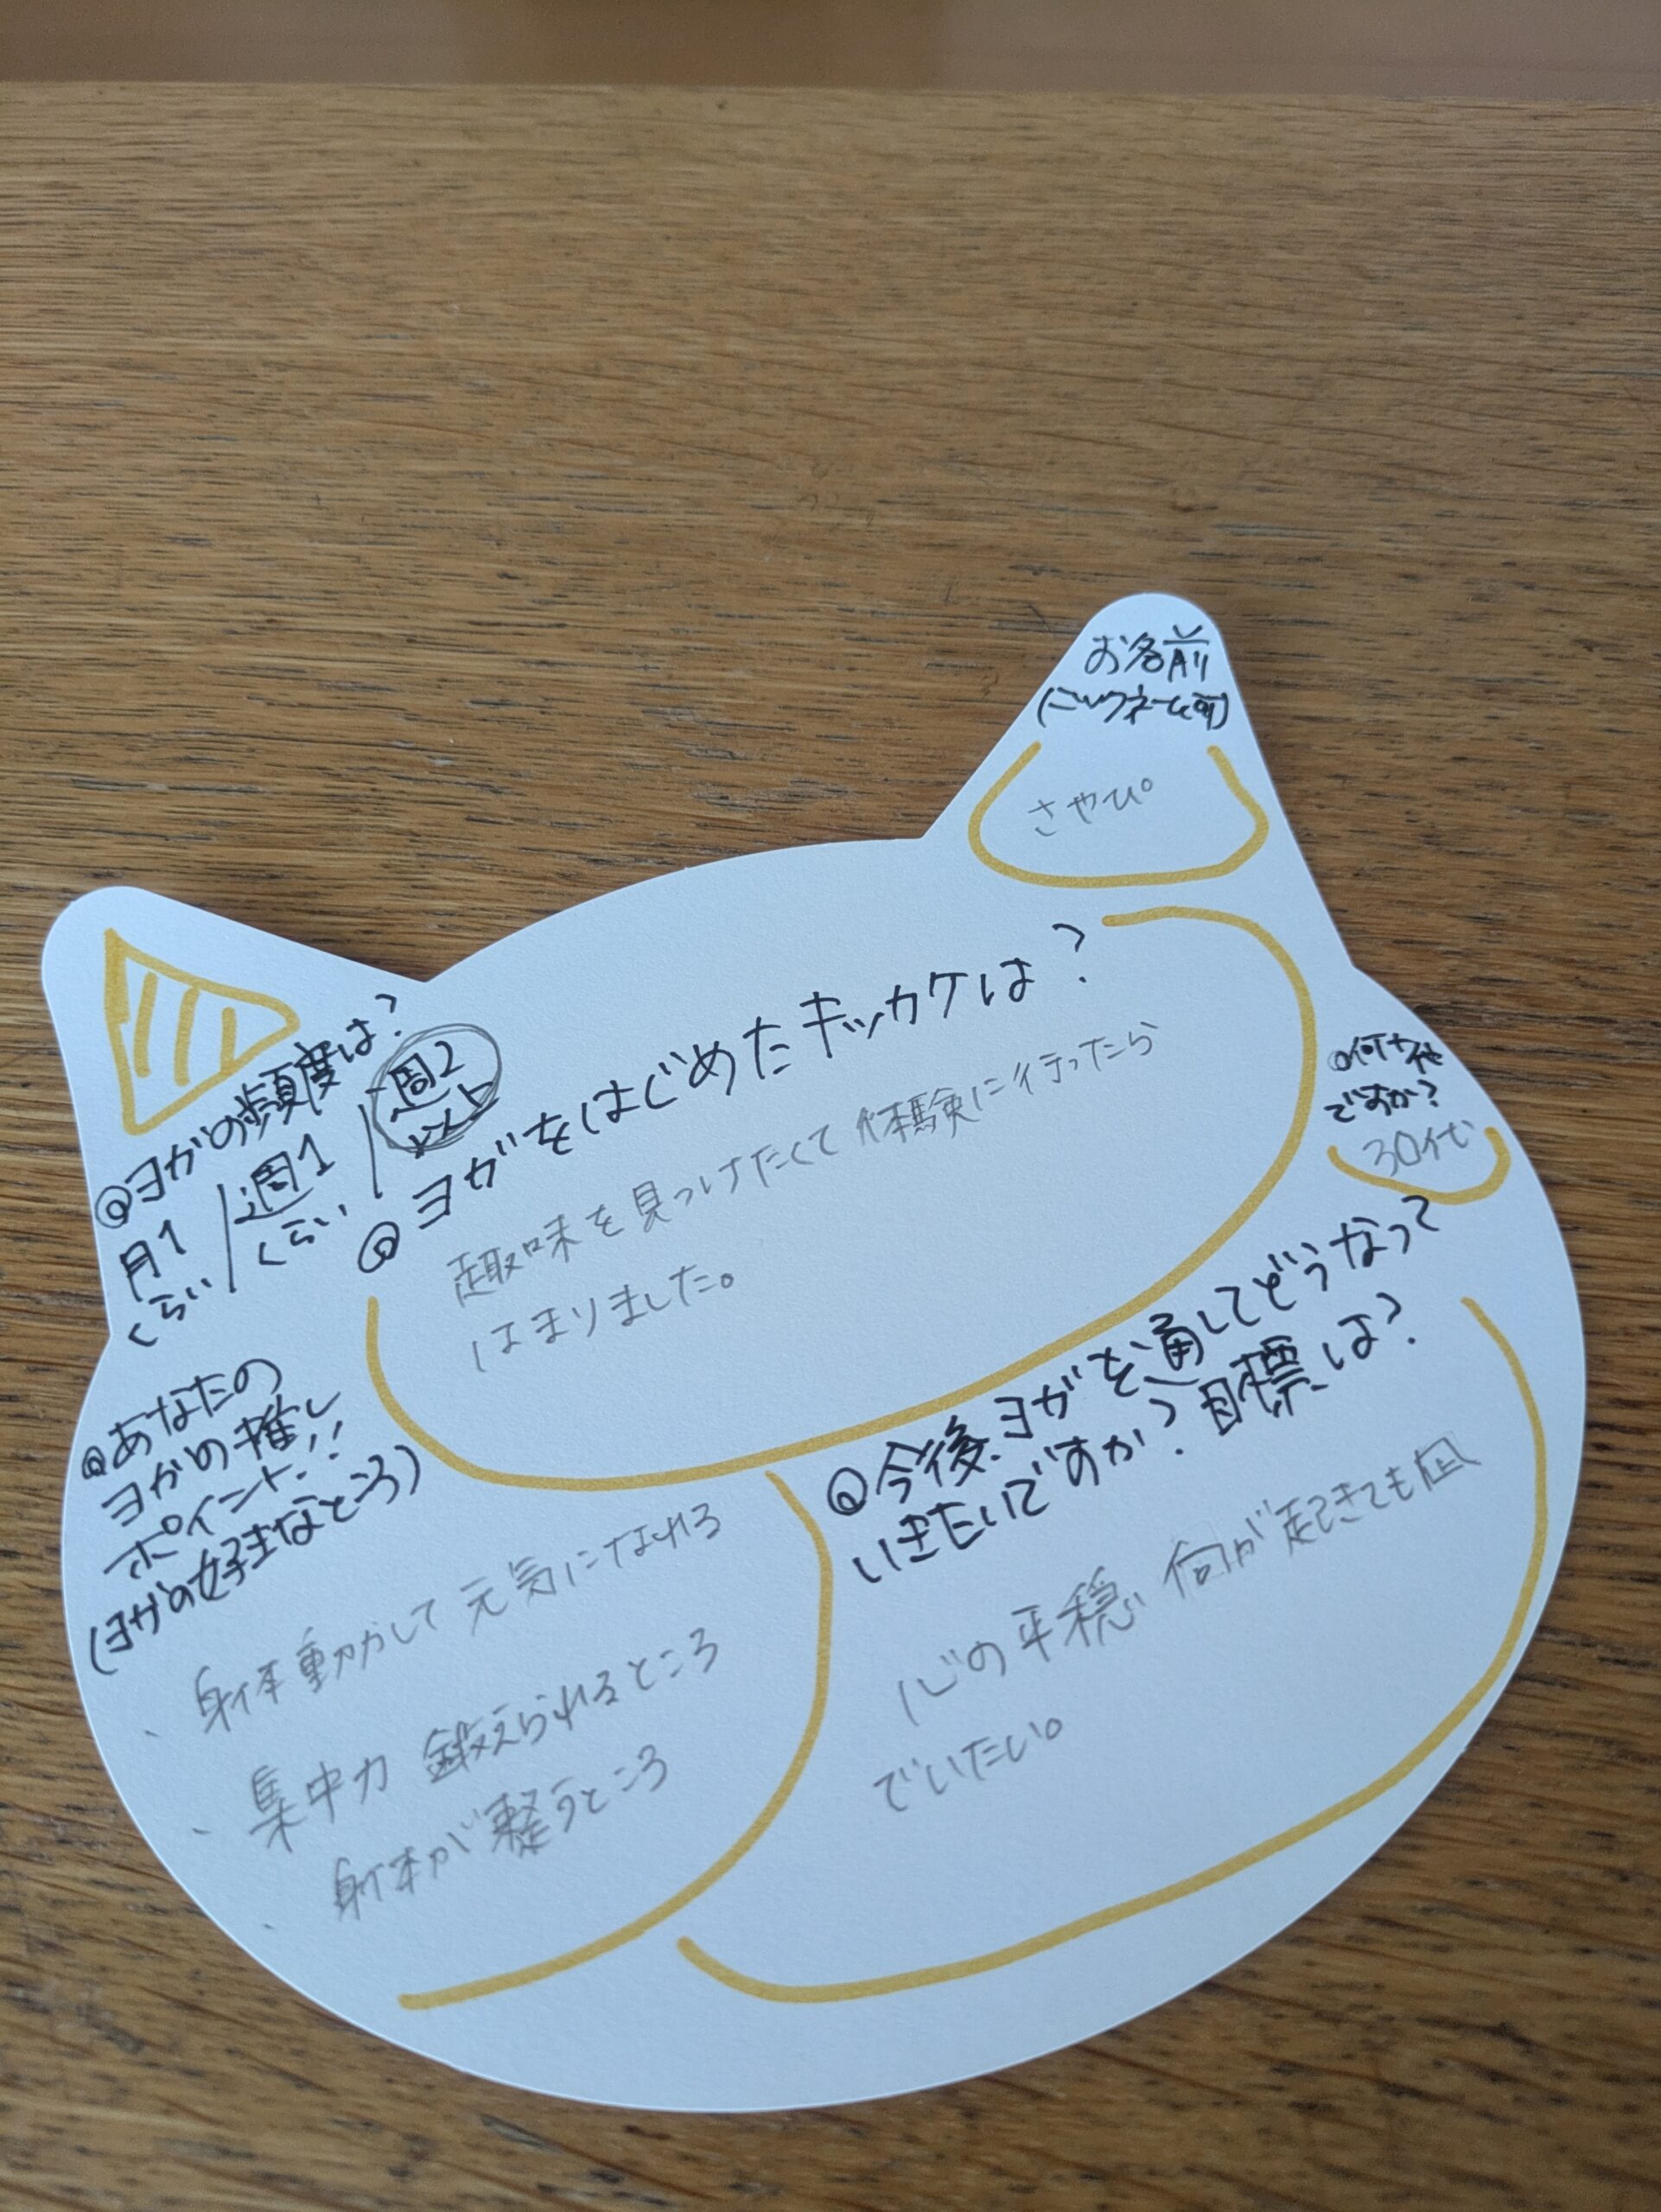 お名前
(ニックネーム可)
さやぴ
@ヨガの頻度は?
月1くらい/週1くらい/週2以上
@ヨガをはじめたキッカケは?
趣味を見つけたくて体験に行ったら
はまりました。
@何才代
ですか?
30代
@あなたの
ヨガの推し
ポイント!!
(ヨガの好きなところ)
、身体動かして元気になれる
、集中力 鍛えられるところ
、身体が整うところ
@今後、ヨガを通してどうなって
いきたいですか?目標は?
心の平穏 何が起きても凪
でいたい。